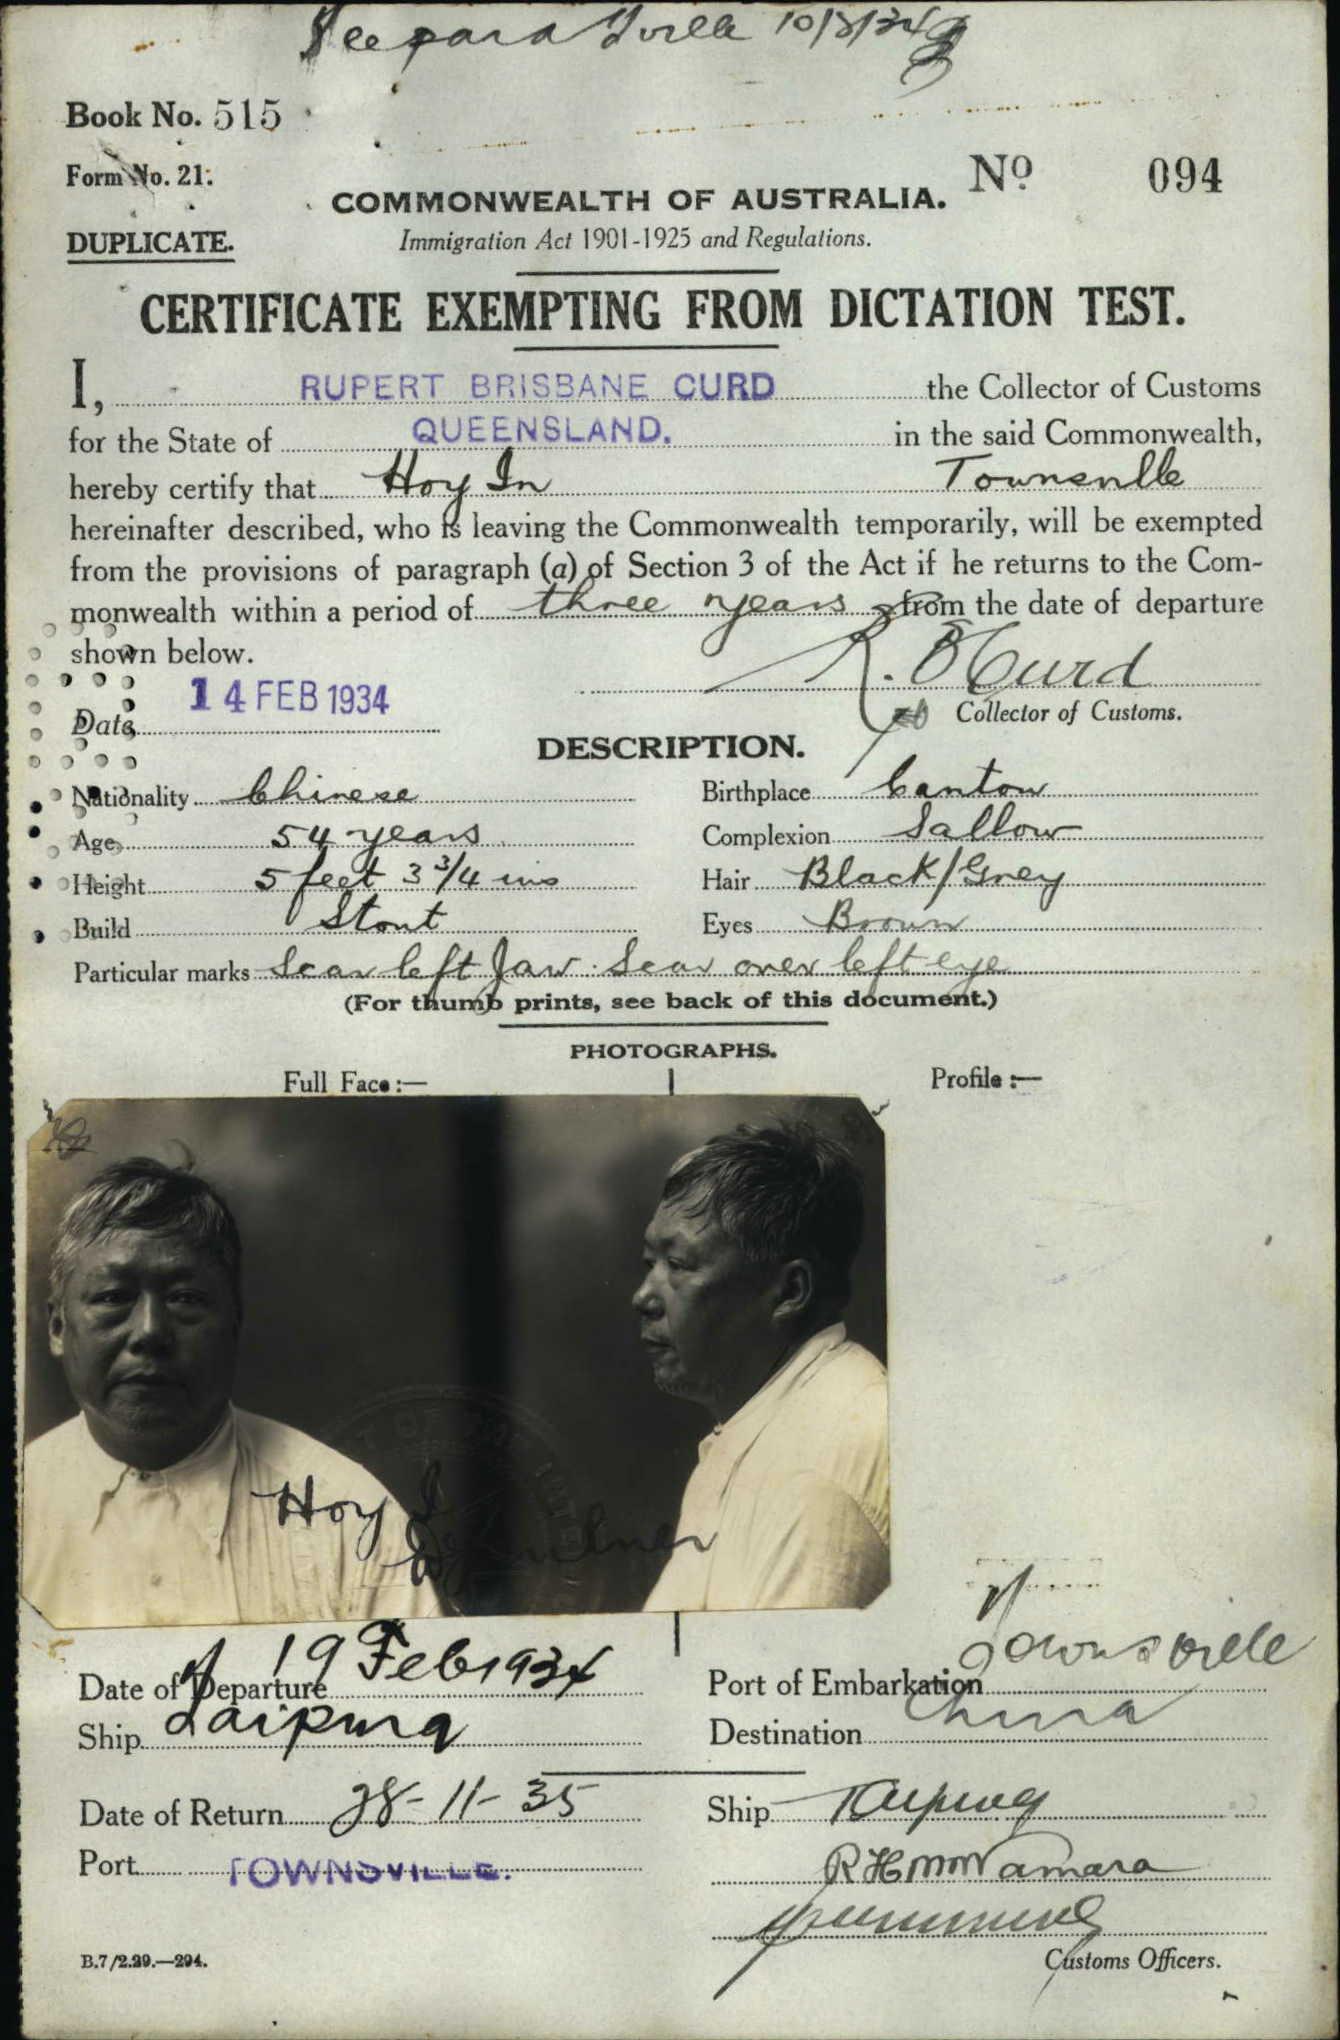 10/3/34
Book No. 515
Form No. 21.
No 094
COMMONWEALTH OF AUSTRALIA.
DUPLICATE.
Immigration Act 1901-1925 and Regulations.
CERTIFICATE EXEMPTING FROM DICTATION TEST.
I, RUPERT BRISBANE CURD the Collector of Customs
for the State of QUEENSLAND. in the said Commonwealth,
hereby certify that Hoy In Townsville
hereinafter described, who is leaving the Commonwealth temporarily, will be exempted
from the provisions of paragraph (a) of Section 3 of the Act if he returns to the Com-
monwealth within a period of three years from the date of departure
shown below.
R. B Curd
Date 14 FEB 1934
Collector of Customs.
DESCRIPTION.
Nationality Chinese Birthplace Canton
Age 54 years Complexion Sallow
Height 5 feet 3 3/4 ins Hair Black/Grey
Build Stout Eyes Brown
Particular marks Scar left Jaw. Scar over left eye
(For thumb prints, see back of this document.)
PHOTOGRAPHS.
Full Face:— Profile:—
Hoy I
Date of Departure 19 Feb 1934 Port of Embarkation Townsville
Ship Taiping Destination China
Date of Return 28-11-35 Ship Taiping
Port TOWNSVILLE.
Customs Officers.
B.7/2.29.—294.